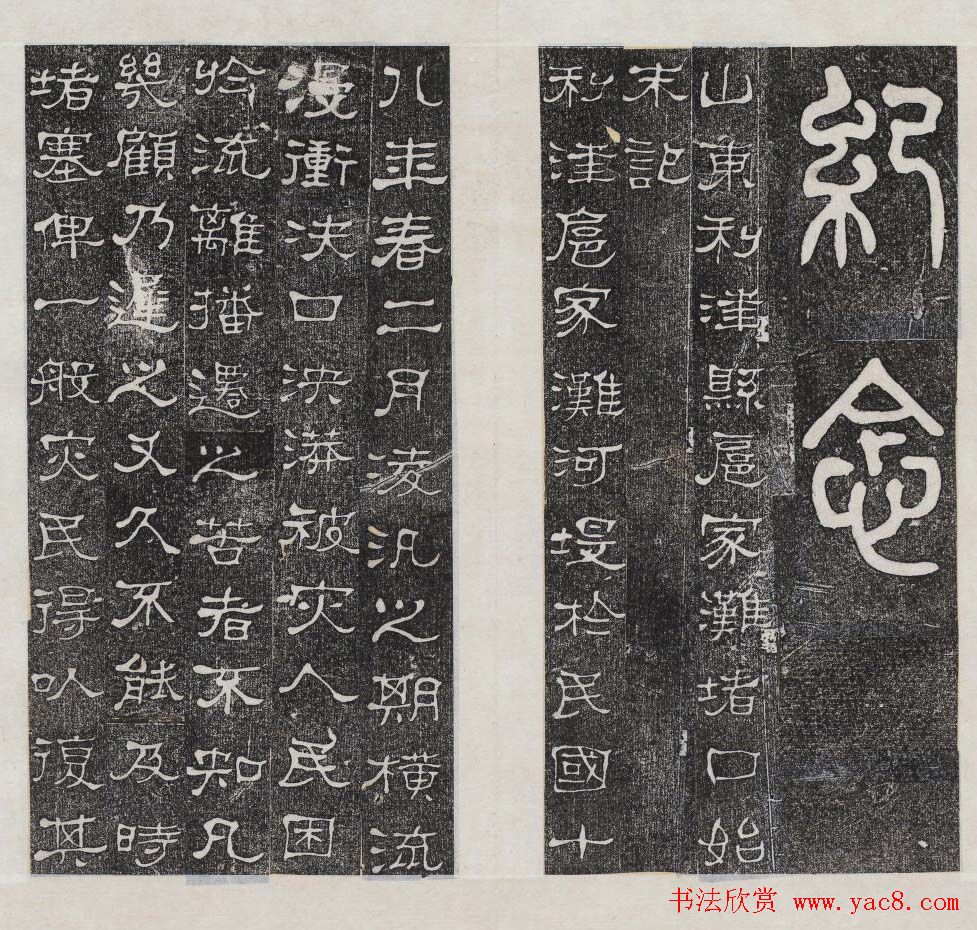 紀念
山東利津縣扈家灘堵口始
末記
利津扈家灘河堤於民國十
八年春二月凌汛之期橫流
漫衝決口泱漭被灾人民困
於流離播遷之苦者不知凡
幾顧乃遲之又久不能及時
堵塞俾一般灾民得以復其
书法欣赏 www.yac8.com